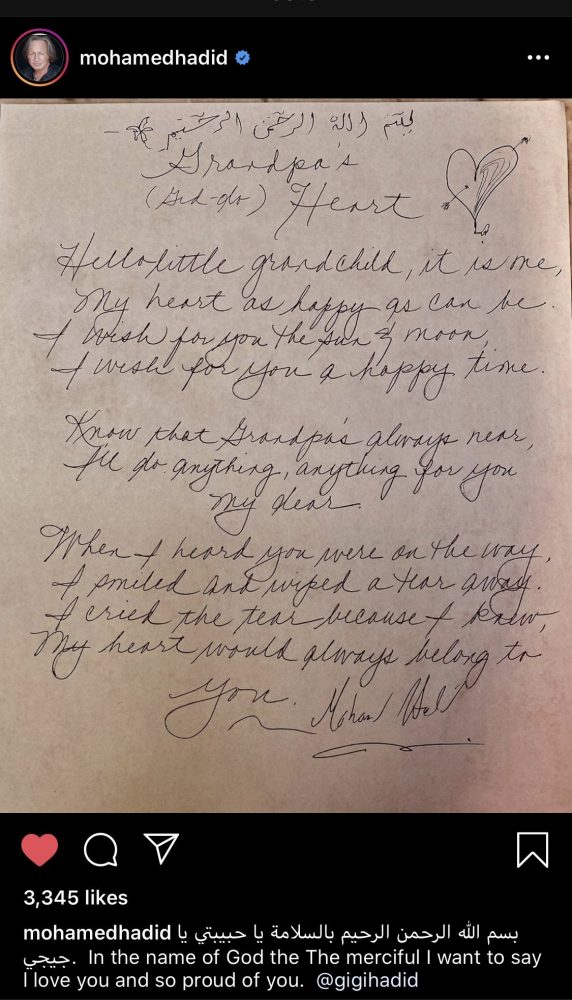 mohamedhadid
بسم الله الرحمن الرحيم
Grandpa's
(Gid-do) Heart
Hello little grandchild, it is me,
My heart as happy as can be.
I wish for you the sun & moon,
I wish for you a happy time.
Know that Grandpa's always near,
I'll do anything, anything for you
my dear.
When I heard you were on the way,
I smiled and wiped a tear away.
I cried the tear because I knew,
My heart would always belong to
you.
3,345 likes
mohamedhadid بسم الله الرحمن الرحيم بالسلامة يا حبيبتي يا
جيجي. In the name of God the The merciful I want to say
I love you and so proud of you. @gigihadid